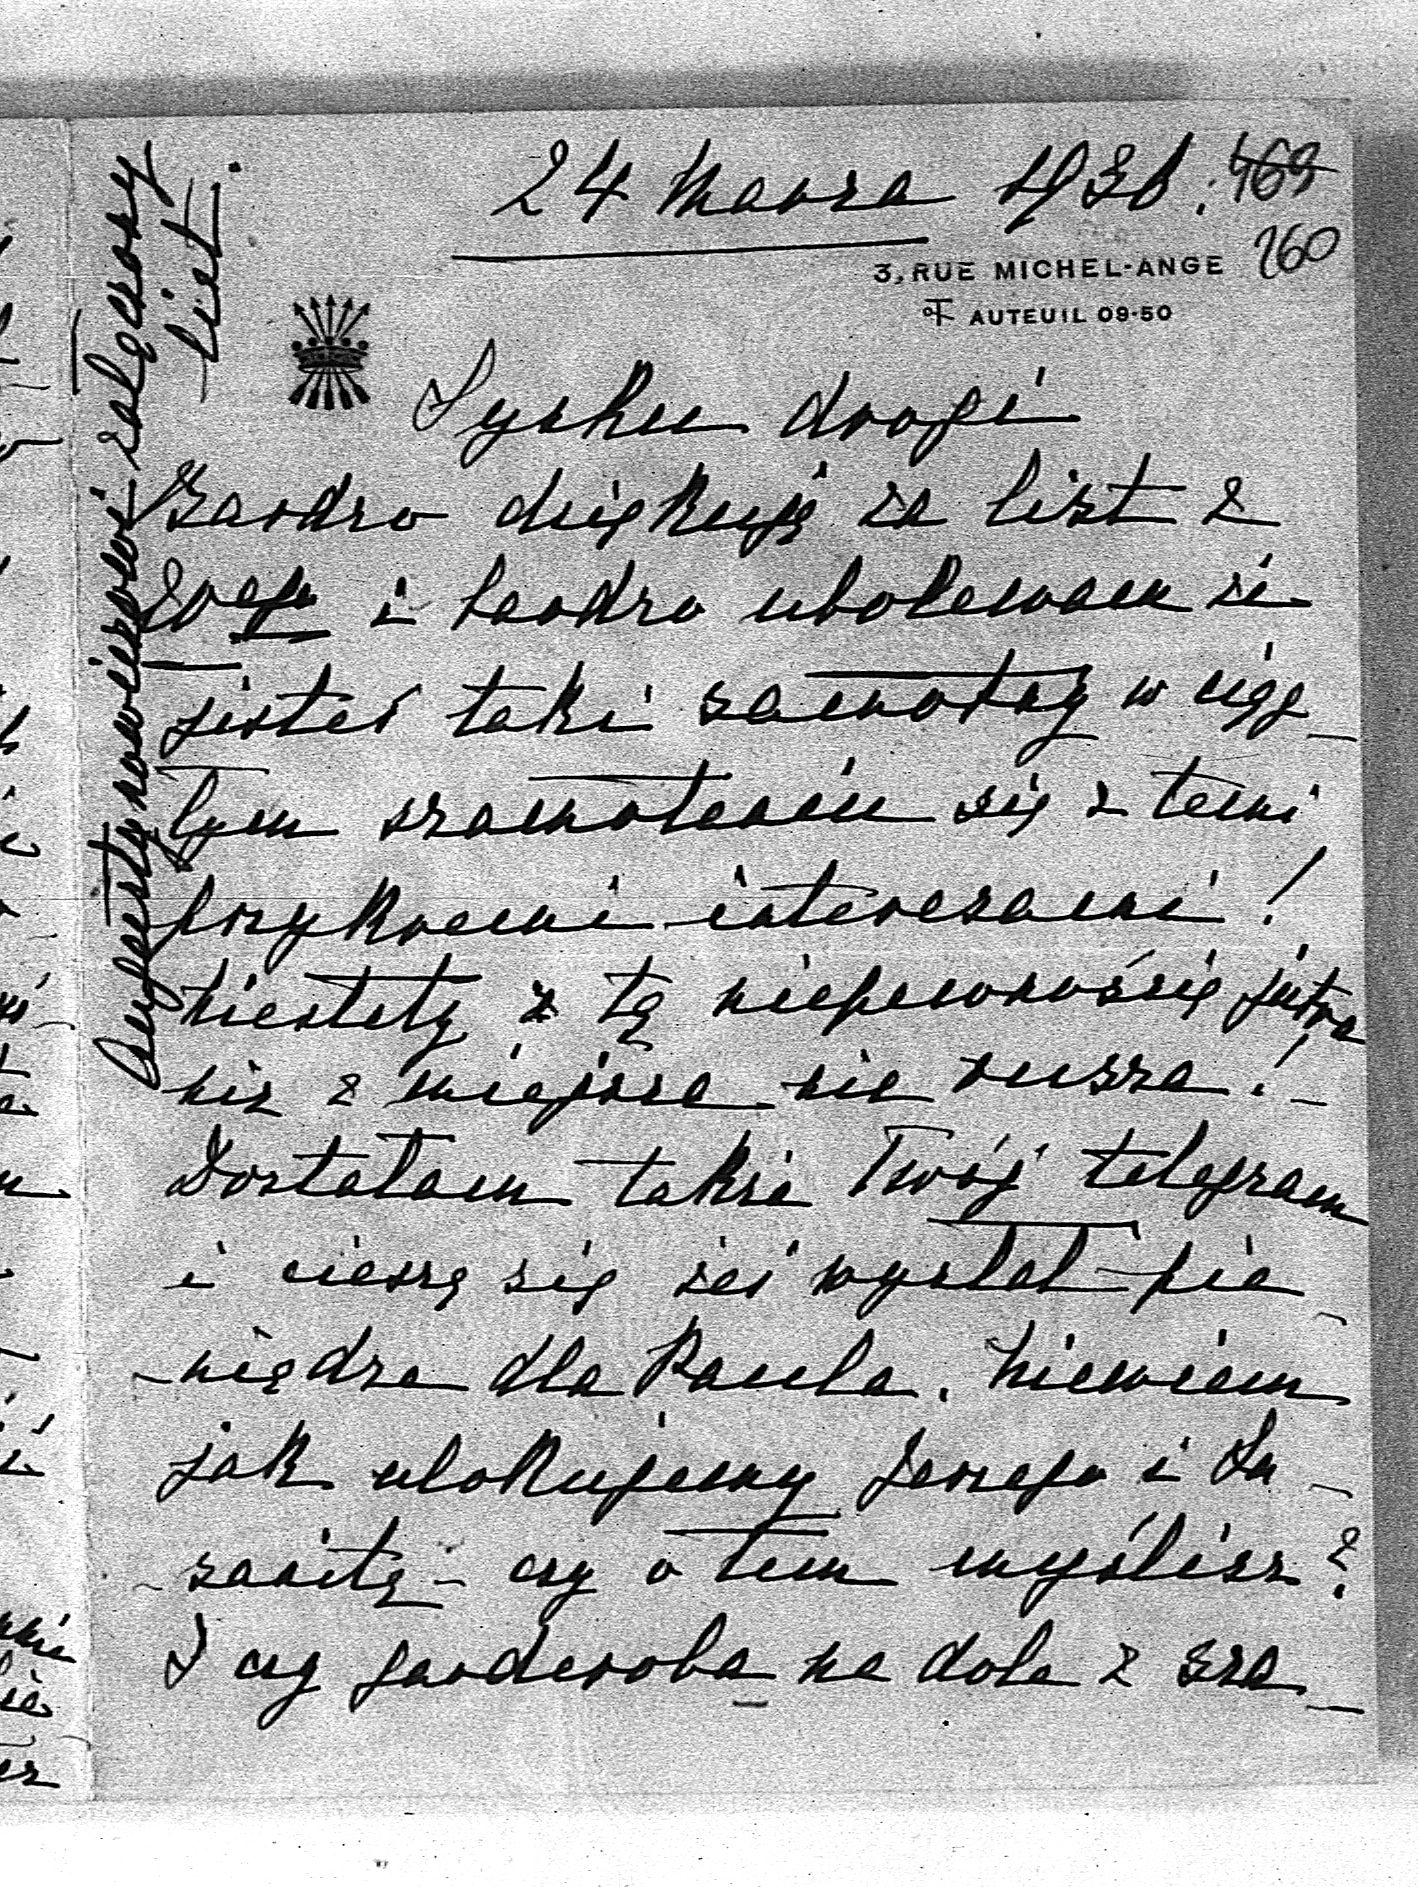 24 Marca 1936. 169
260
3, RUE MICHEL-ANGE
AUTEUIL 09-50
drogi
Bardzo dziękuję za list z
i bardzo ubolewam że
jesteś taki samotny w cią-
łym szamotaniu się z temi
przykremi interesami!
Niestety z tą niepewnością jutra
nic z miejsca nie rusza! -
Dostałam także Twój telegram
i cieszę się żeś wysłał pie-
-niędze dla Paula. Niewiem
jak ulokujemy Józefa i Su-
-zanitę - czy o tem myślisz?
I czy garderoba na dole z sza-
załączony
list.